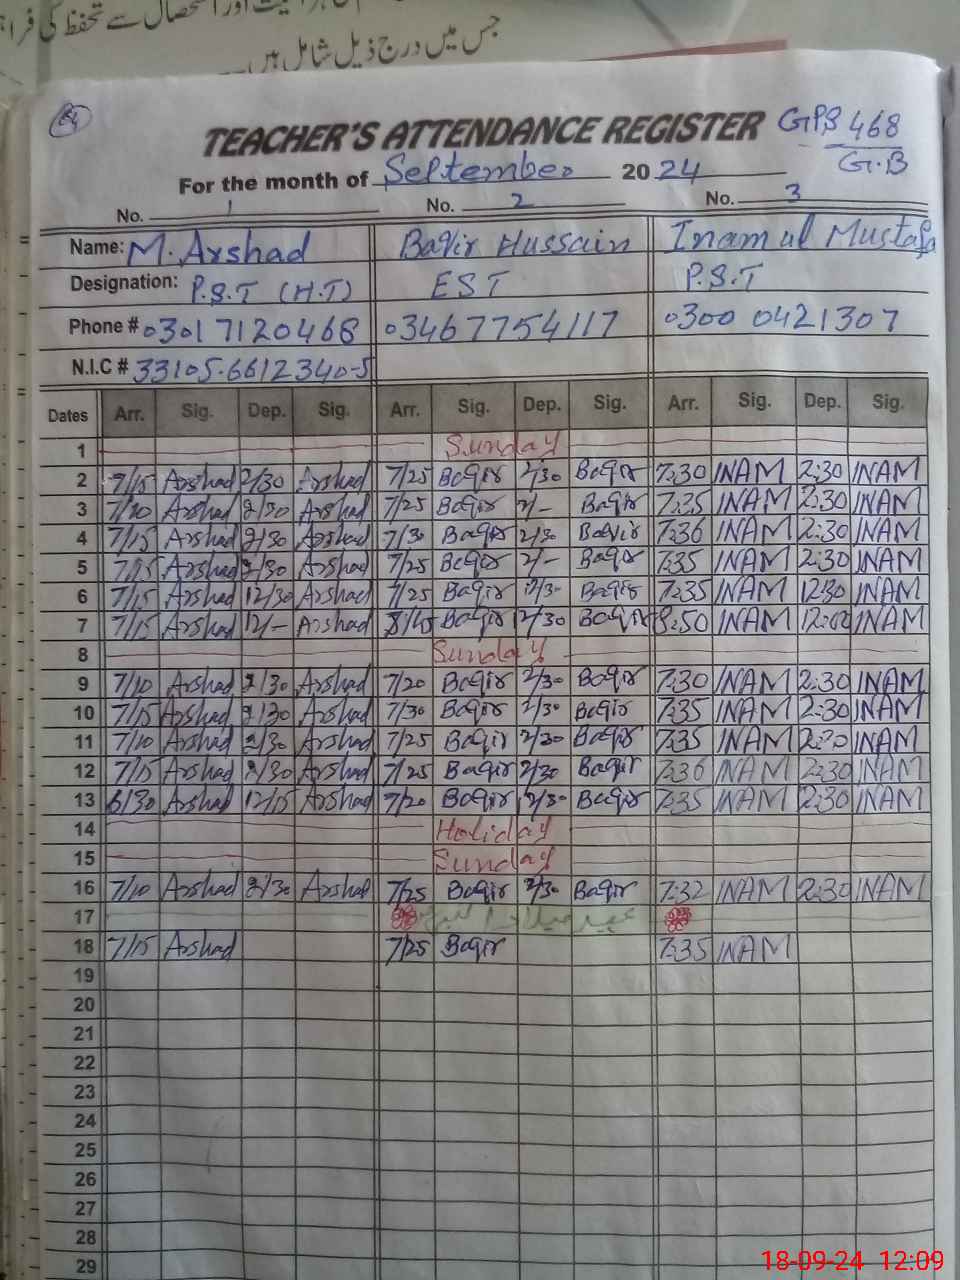 جس میں درج ذیل شامل ہیں
TEACHER'S ATTENDANCE REGISTER GPS 468
G.B
For the month of September 2024
No. 1 No. 2 No. 3
Name: M. Arshad Baqir Hussain Inam ul Mustafa
Designation: P.S.T (H.T) EST P.S.T
Phone # 03017120468 03467754117 0300 0421307
N.I.C # 33105-6612340-5
Dates Arr. Sig. Dep. Sig. Arr. Sig. Dep. Sig. Arr. Sig. Dep. Sig.
1 Sunday
2 7/15 Arshad 2/30 Arshad 7/25 Baqir 2/30 Baqir 7:30 INAM 2:30 INAM
3 Arshad Arshad 7/25 Baqir 2/- Baqir 7:25 INAM 2:30 INAM
4 7/15 Arshad 2/30 Arshad 7/30 Baqir 2/30 Baqir 7:36 INAM 2:30 INAM
5 7/15 Arshad 2/30 Arshad 7/25 Baqir 2/- Baqir 7:35 INAM 2:30 INAM
6 7/15 Arshad 12/30 Arshad 7/25 Baqir 12/30 Baqir 7:35 INAM 12:30 INAM
7 7/15 Arshad 12/- Arshad Baqir 12/30 Baqir 8:50 INAM 12:00 INAM
8 Sunday
9 7/10 Arshad 2/30 Arshad 7/20 Baqir 2/30 Baqir 7:30 INAM 2:30 INAM
10 7/15 Arshad 2/30 Arshad 7/30 Baqir 2/30 Baqir 7:35 INAM 2:30 INAM
11 7/10 Arshad 2/30 Arshad 7/25 Baqir 2/30 Baqir 7:35 INAM INAM
12 7/15 Arshad 2/30 Arshad 7/25 Baqir 2/30 Baqir 7:36 INAM 2:30 INAM
13 6/30 Arshad 12/15 Arshad 7/20 Baqir Baqir 7:35 INAM 2:30 INAM
14 Holiday
15 Sunday
16 7/10 Arshad 2/30 Arshad 7/25 Baqir 2/30 Baqir 7:32 INAM 2:30 INAM
17 عید میلاد النبی
18 7/15 Arshad 7/25 Baqir 7:35 INAM
19
20
21
22
23
24
25
26
27
28
29
18-09-24 12:09